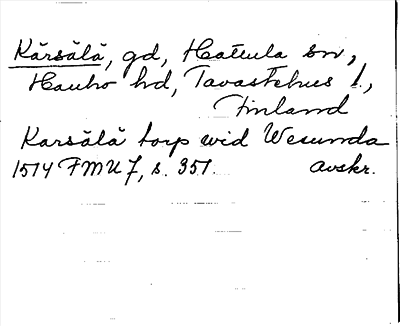 Kärsälä, gd, Hattula sn,
Hauho hd, Tavastehus l.,
Finland
Karsälä torp wid Wesunda
1574 FMU 7, s. 351. avskr.